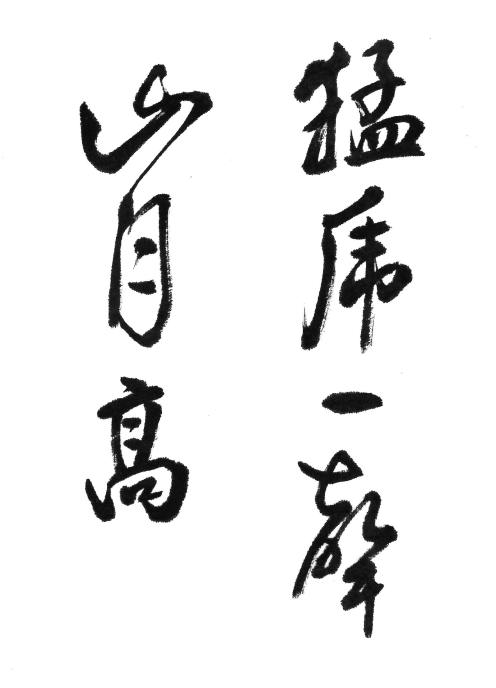 猛虎一聲
山月高